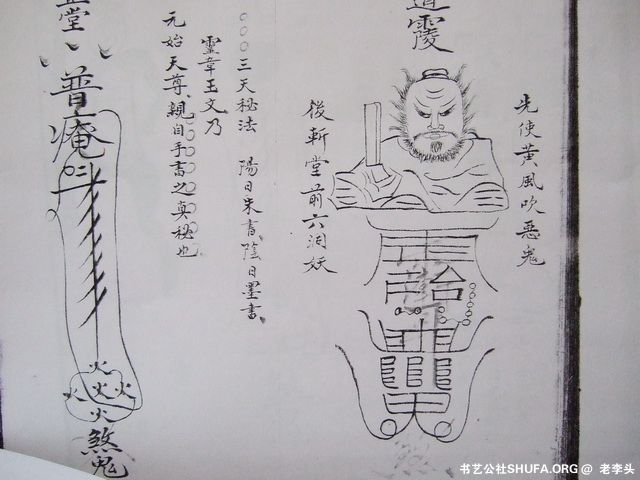 先使黄風吹惡鬼
後斬堂前六洞妖
○○○三天秘法 陽日朱書陰日墨書
靈章王文乃
元始天尊親自手書之真秘也
堂
普庵
火
火火火
火
煞鬼
书艺公社SHUFA.ORG @ 老李头